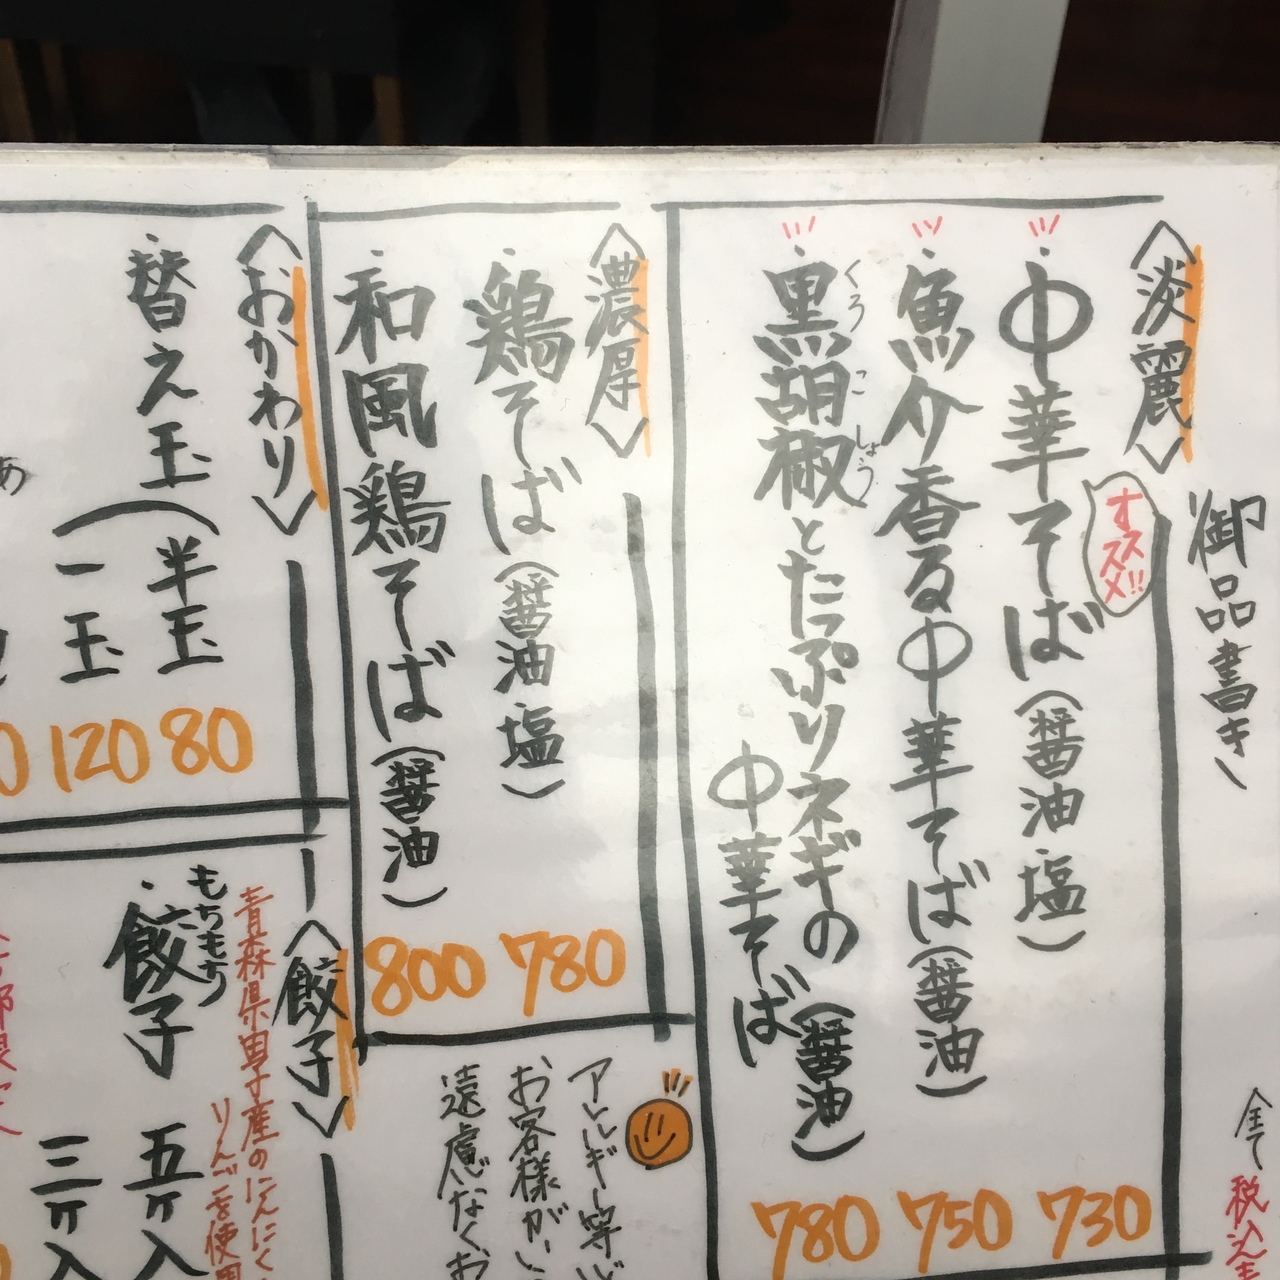 御品書き
全て税込
〈淡麗〉
オススメ!!
・中華そば(醤油 塩) 730
・魚介香る中華そば(醤油) 750
・黒胡椒とたっぷりネギの
くろ こ しょう
中華そば(醤油) 780
〈濃厚〉
・鶏そば(醤油 塩) 780
和風鶏そば(醤油) 800
〈おかわり〉
・替え玉(半玉 80
一玉 120
アレルギー等
お客様が
遠慮なくお
〈餃子〉
青森県男子産のにんにく
りんごを使用
もちもち
・餃子 五ヶ入
三ヶ入